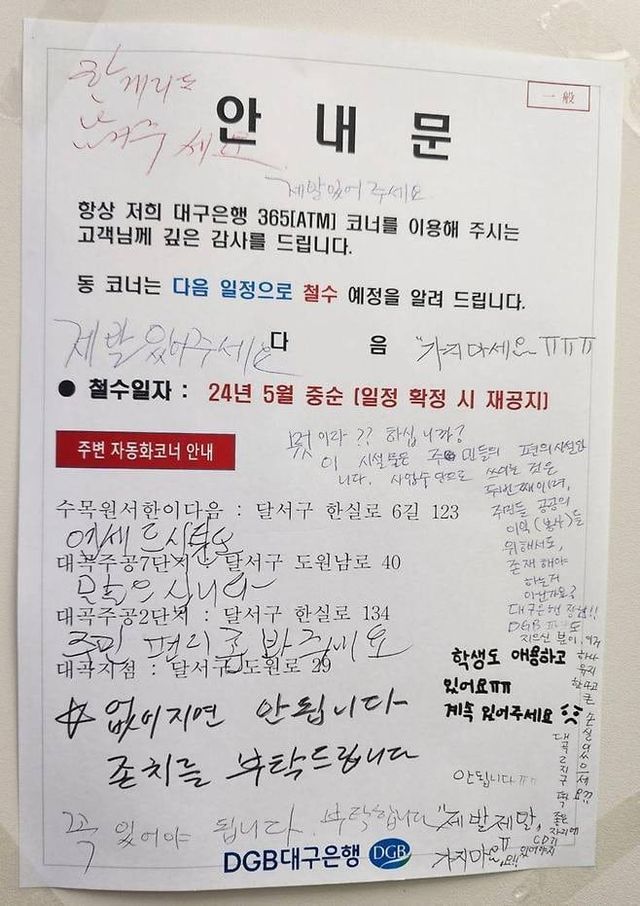 한
게리도
一般
안 내 문
제발있어주세요
항상 저희 대구은행 365[ATM] 코너를 이용해 주시는
고객님께 깊은 감사를 드립니다.
동 코너는 다음 일정으로 철수 예정을 알려 드립니다.
제발 있어주세요
다 음
"가지마세요 ㅠㅠㅠ
● 철수일자 : 24년 5월 중순 (일정 확정 시 재공지)
주변 자동화코너 안내
뭣이라?? 하십니까?
이 시설물은 주민들의 편의시설입
니다. 사업수단으로 쓰이는 것은
두번째이며,
주민들 공공의
이익(봉사)을
위해서도,
존재해야
하는거
아닌가요?
대구은행 장점!!
DGB
수목원서한이다음 : 달서구 한실로 6길 123
대곡주공7단지 : 달서구 도원남로 40
대곡주공2단지 : 달서구 한실로 134
주민 편리를 봐주세요
대곡지점 : 달서구 도원로 29
학생도 애용하고
있어요ㅠㅠ
계속 있어주세요
☆ 없어지면 안됩니다
존치를 부탁드립니다
안됩니다ㅠㅠ
꼭 있어야 됩니다. 부탁합니다
"제발제발,
가지마요ㅠ
DGB대구은행 DGB